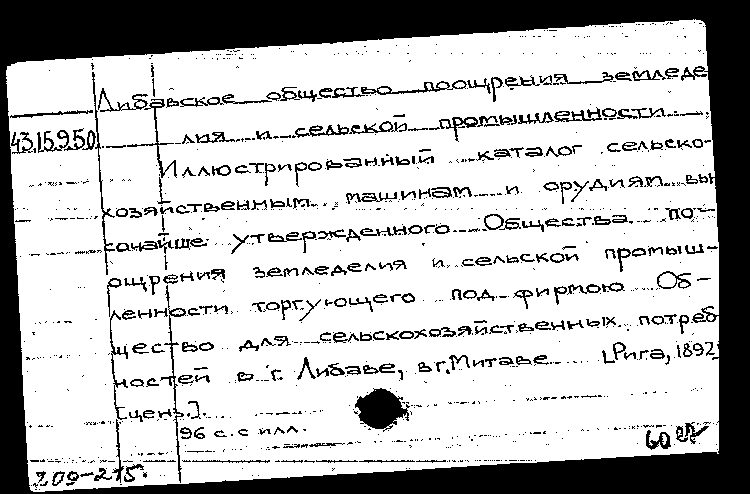 Либавское общество поощрения земледе
43.15.9.50
лия и сельской промышленности.
Иллюстрированный каталог сельско-
хозяйственным машинам и орудиям вы
сочайше утвержденного Общества по-
ощрения земледелия и сельской промыш-
ленности торгующего под фирмою Об-
щество для сельскохозяйственных потреб
ностей в г. Либаве, в г. Митаве [Рига, 1892]
[цены].
96 с. с илл.
60
209-215.